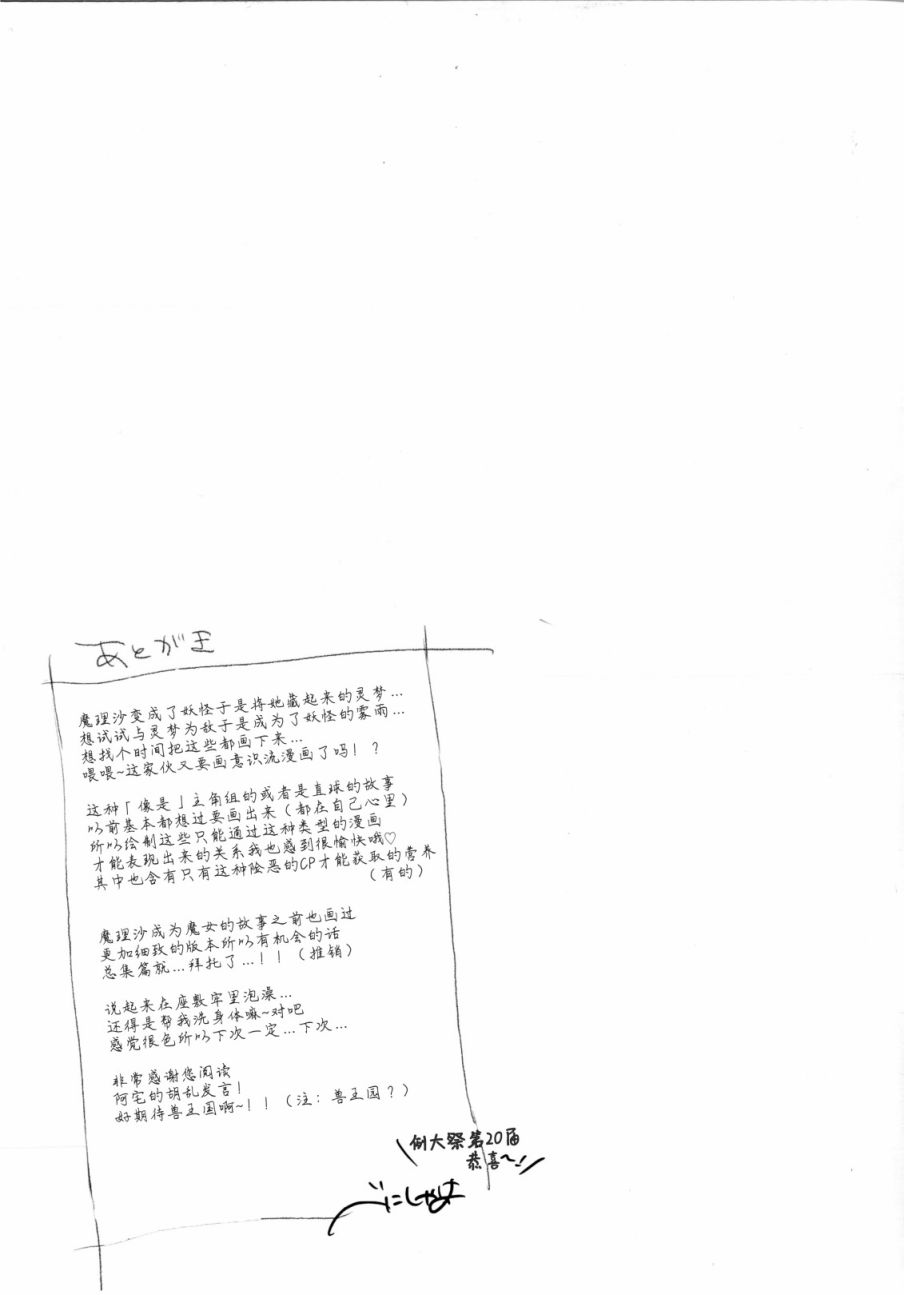 あとがき
魔理沙变成了妖怪于是将她藏起来的灵梦…
想试试与灵梦为敌于是成为了妖怪的雾雨…
想找个时间把这些都画下来…
喂喂~这家伙又要画意识流漫画了吗！？
这种「像是」主角组的或者是直球的故事
以前基本都想过要画出来（都在自己心里）
所以绘制这些只能通过这种类型的漫画
才能表现出来的关系我也感到很愉快哦♡
其中也含有只有这种险恶的CP才能获取的营养
（有的）
魔理沙成为魔女的故事之前也画过
更加细致的版本所以有机会的话
总集篇就…拜托了…！！（推销）
说起来在座敷牢里泡澡…
还得是帮我洗身体嘛~对吧
感觉很色所以下次一定…下次…
非常感谢您阅读
阿宅的胡乱发言！
好期待兽王国啊~！！（注：兽王园？）
例大祭第20届
恭喜~！
べにしゃけ